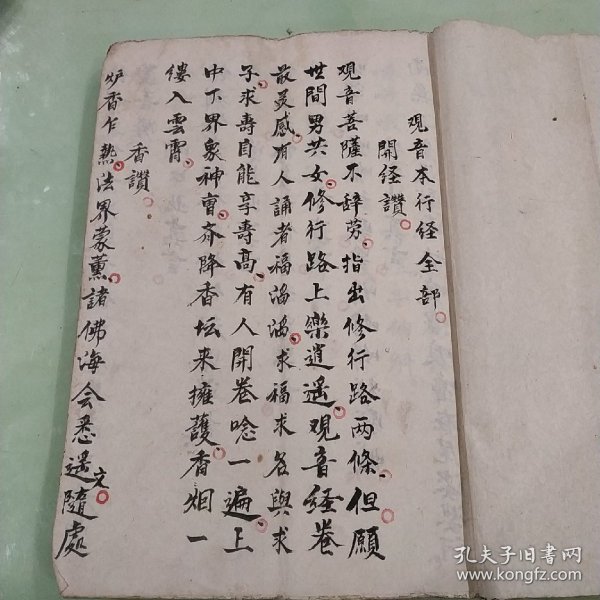 观音本行经全部
開经讚
观音菩薩不辞劳指出修行路两條但願
世間男共女修行路上樂逍遥观音经卷
最灵感有人誦者福滔滔求福求名與求
子求壽自能享壽高有人開卷唸一遍上
中下界衆神會齐降香坛来擁護香烟一
缕入雲霄
香讚
炉香乍热法界蒙薰諸佛海会悉遥隨處
文
孔夫子旧书网
www.kongfz.com